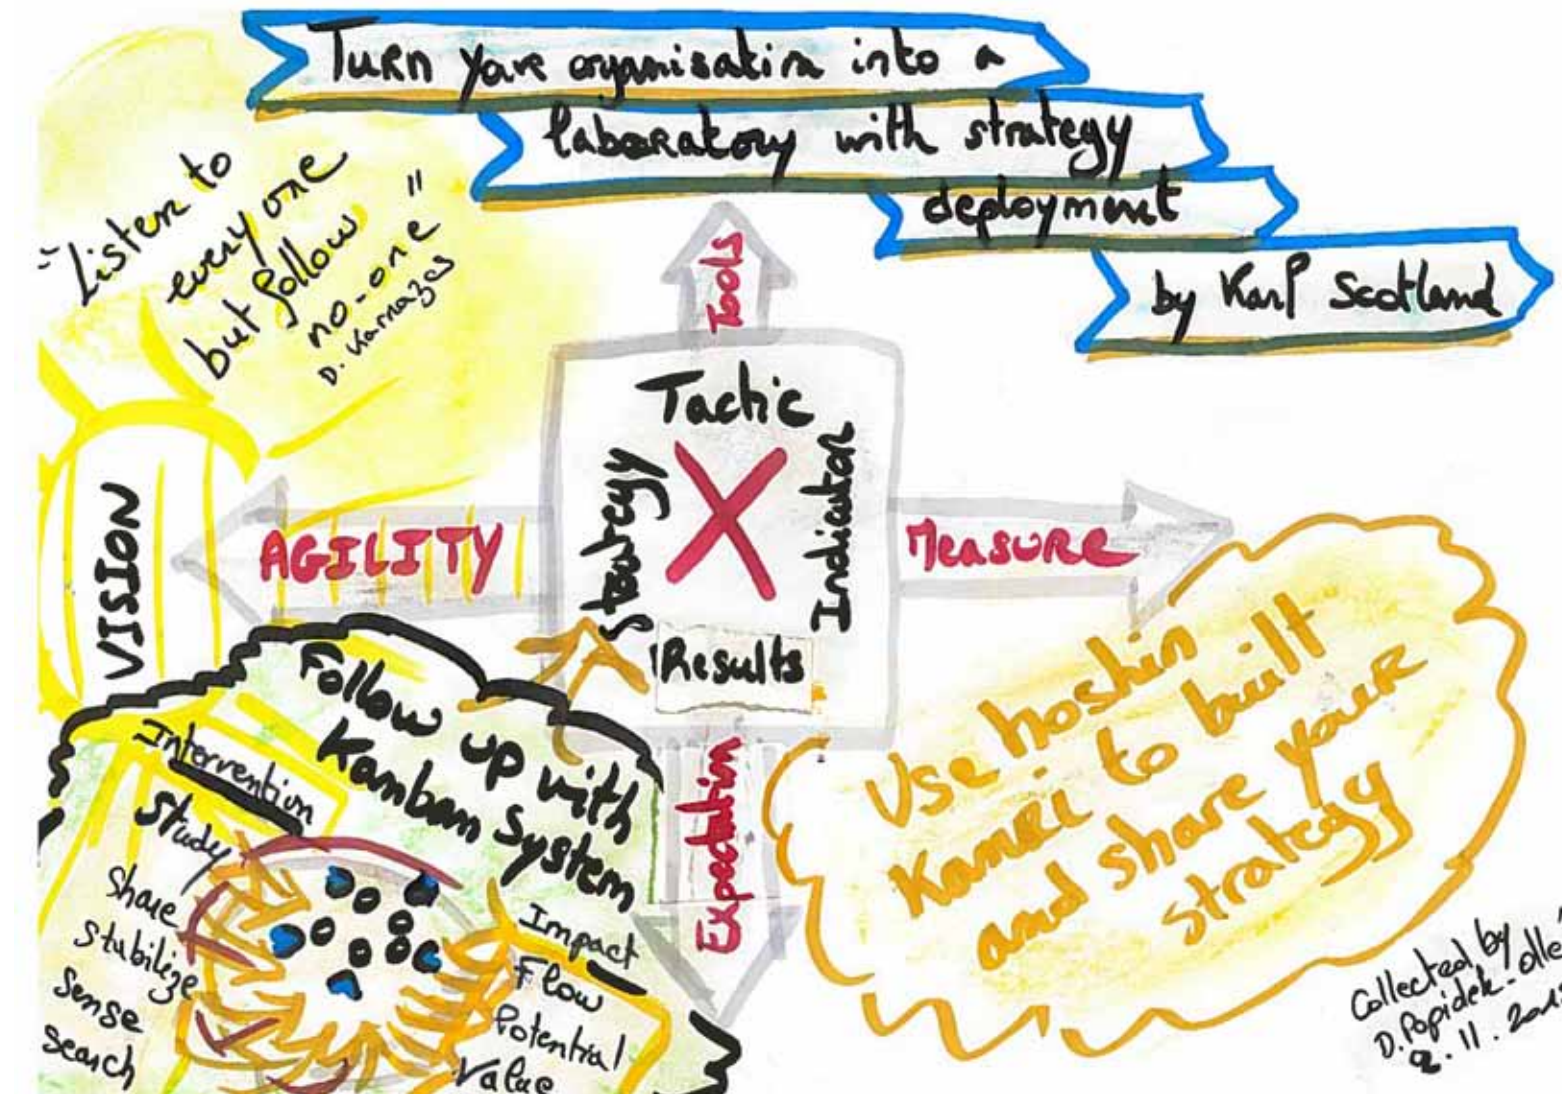 Turn your organisation into a
laboratory with strategy
deployment
by Karl Scotland
"Listen to
every one
but follow
no-one"
D. Karnazes
Tools
Tactic
Strategy
X
Indicator
Results
AGILITY
MEASURE
Expectation
VISION
Follow up with
Kanban System
Intervention
Study
Share
Stabilize
Sense
Search
Impact
Flow
Potential
Value
Use hoshin
Kanri to built
and share your
strategy
Collected by